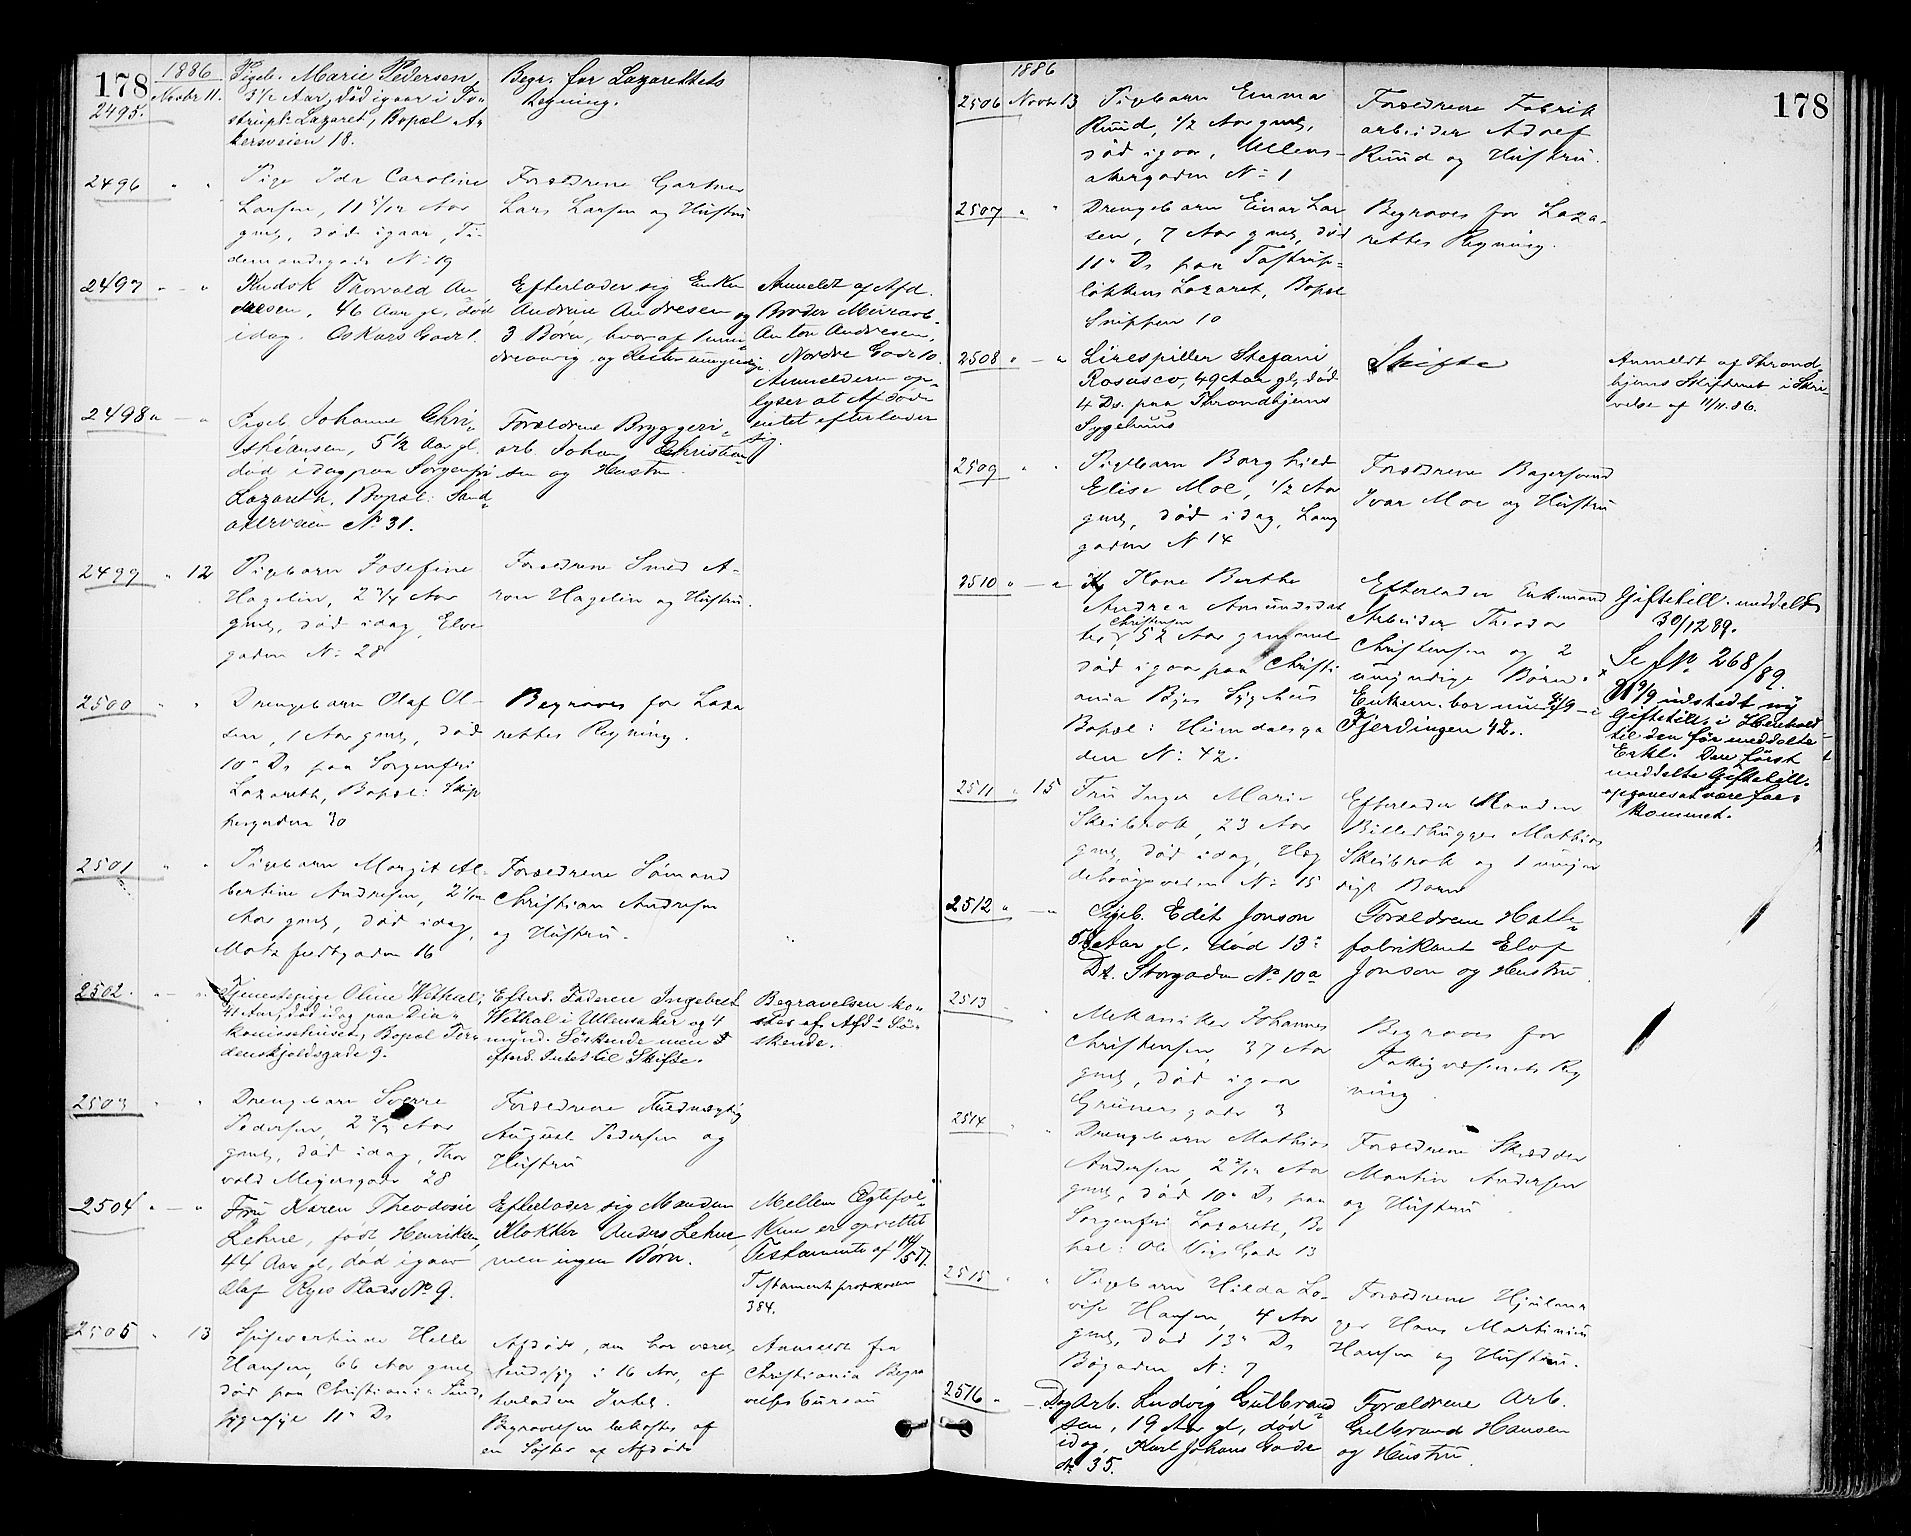 178
1886
2495.
Novbr 11.
Pigeb. Marie Pedersen,
3½ Aar, død igaar i To-
strupl. Lazaret, Bopæl Ak
kersveien 18.
Begr. for Lazarettets
Regning.
2496 " "
Pige Ida Caroline
Larsen, 11 5/12 Aar
gml, død igaar, Ti-
demandsgade N: 19
Forældrene Gartner
Lars Larsen og Hustru
2497 " — "
Kudsk Thorvald An
dresen, 46 Aar gl, død
idag. Oskars Gade 1.
Efterlader sig Enken
Andrine Andresen og
3 Børn, hvoraf 1 min
dreaarig og Resten umyndi
ge.
Anmeldt af Afd.
Broder Murarb.
Anton Andresen,
Nordre Gade 10.
Anmelderen op-
lyser at Afdøde
intet efterlader
sig.
2498 " — "
Pigeb Johanne Chri-
stiansen, 5½ Aar gl.
død idag paa Sorgenfri
Lazareth. Bopæl: Sand-
akerveien N 31.
Forældrene Bryggeri-
arb. Johan Christian-
sen og Hustru.
2499 " 12
Pigebarn Josefine
Hagelin, 2 3/4 Aar
gml, død idag, Elve
gaden N: 28
Forældrene Smed A-
ron Hagelin og Hustru.
2500 " "
Drengebarn Olaf Ol-
sen, 1 Aar gml, død
10" Ds paa Sorgenfri
Lazareth, Bopæl: Skip
pergaden 30
Begraves for Laza
rettes Regning.
2501 " "
Pigebarn Margit Al-
bertine Andresen, 2 1/12
Aar gml, død idag,
Motzfeldtgaden 16
Forældrene Sømand
Christian Andresen
og Hustru.
2502. " — "
Tjenestepige Oline Wethal,
41 Aar, død idag paa Dia-
konissehuset, Bopæl Tor-
denskjoldsgade 9.
Efterl. Faderen Ingebret
Wethal i Ullensaker og 4
mynd. Søskende men
efterl. Intet til Skifte.
Begravelsen ko-
stes af Afd: Sø-
skende.
2503 " "
Drengebarn Sverre
Pedersen, 2 2/3 Aar
gml, død idag, Thor
vald Meyersgade 28
Forældrene Fuldmægtig
August Pedersen og
Hustru
2504 " — "
Fru Karen Theodosie
Lehne, født Henriksen,
44 Aar gl, død igaar
Olaf Ryes Plads No 9.
Efterlader sig Manden
Klokker Anders Lehne,
men ingen Børn.
Mellem Ægtefol-
kene er oprettet
Testamente af 14/5 57.
Testamentprotokolen
384.
2505 " 13
Spiseværtinde Helle
Hansen, 66 Aar gml,
død paa Christiania Sind
sygeasyl 11" Ds
Afdøde, der har været
sindssyg i 16 Aar, ef
terlader Intet.
Begravelsen bekostes af
en Søster af Afdøde
Anmeldt fra
Christiania Begra
velsesbureau
178
1886
2506 Novbr 13
Pigebarn Emma
Ruud, 1/2 Aar gml,
død igaar, Ullens-
akergaden N: 1
Forældrene Fabrik
arbeider Adolf
Ruud og Hustru.
2507 " "
Drengebarn Einar Lar
sen, 7 Aar gml, død
11" Ds paa Tostrup-
løkkens Lazaret, Bopæl
Snippen 10
Begraves for Laza-
rettes Regning.
2508 " — "
Lirespiller Stefani
Rosasco, 49 Aar gl, død
4 Ds. paa Throndhjems
Sygehuus
Skifte
Anmeldt af Thrond
hjems Skifteret i Skri-
velse af 11/11. 86.
2509 " "
Pigebarn Borghild
Elise Moe, 1/2 Aar
gml, død idag, Lang
gaden N 14
Forældrene Bagersvend
Ivar Moe og Hustru
2510 " — "
Kone Berthe
Andrea Amundsdat
ter Christensen, 52 Aar gammel
død igaar paa Christi
ania Byes Sygehus
Bopæl: Heimdalsga
den N: 42.
Efterlader Enkemand
Arbeider Theodor
Christensen og 2
umyndige Børn.
Enkem. bor nu 21/9 - i
Fjerdingen 42.
Giftetill. meddelt
30/12 89.
Se Jp. 268/89.
9/9 udstedt ny
Giftetill. i Henhold
til den før meddelte
Erkl. Den først
meddelte Giftetill.
opgaves at være for-
kommet.
2511 " 15
Fru Inger Marie
Skeibrok, 23 Aar
gml, død idag, Hæg
dehougsveien N: 15
Efterlader Manden
Billedhugger Mathias
Skeibrok og 1 umyn
digt Barn
2512 " — "
Pigeb. Edit Jonson
5½ Aar gl. død 13"
Ds. Storgaden No 10a
Forældrene Hatte-
fabrikant Elof
Jonson og Hustru
2513 "
Mekaniker Johannes
Christensen, 37 Aar
gml, død igaar
Grünersgade 3
Begraves for
Fattigvæsenets Reg
ning.
2514 " "
Drengebarn Mathias
Andersen, 2 2/12 Aar
gml, død 10" Ds paa
Sorgenfri Lazarett, Bo
pæl: Ole Vigs Gade 13
Forældrene Skrædder
Martin Andersen
og Hustru
2515 " "
Pigebarn Hilda Lo-
vise Hansen, 4 Aar
gml, død 13" Ds
Bøgaden N: 7
Forældrene Hjulma
ger Hans Martinius
Hansen og Hustru.
2516 " —
Dagarb. Ludvig Gulbrand
sen, 19 Aar gl, død
idag. Karl Johans Gade
No 35.
Forældrene Arb.
Gulbrand Hansen
og Hustru.